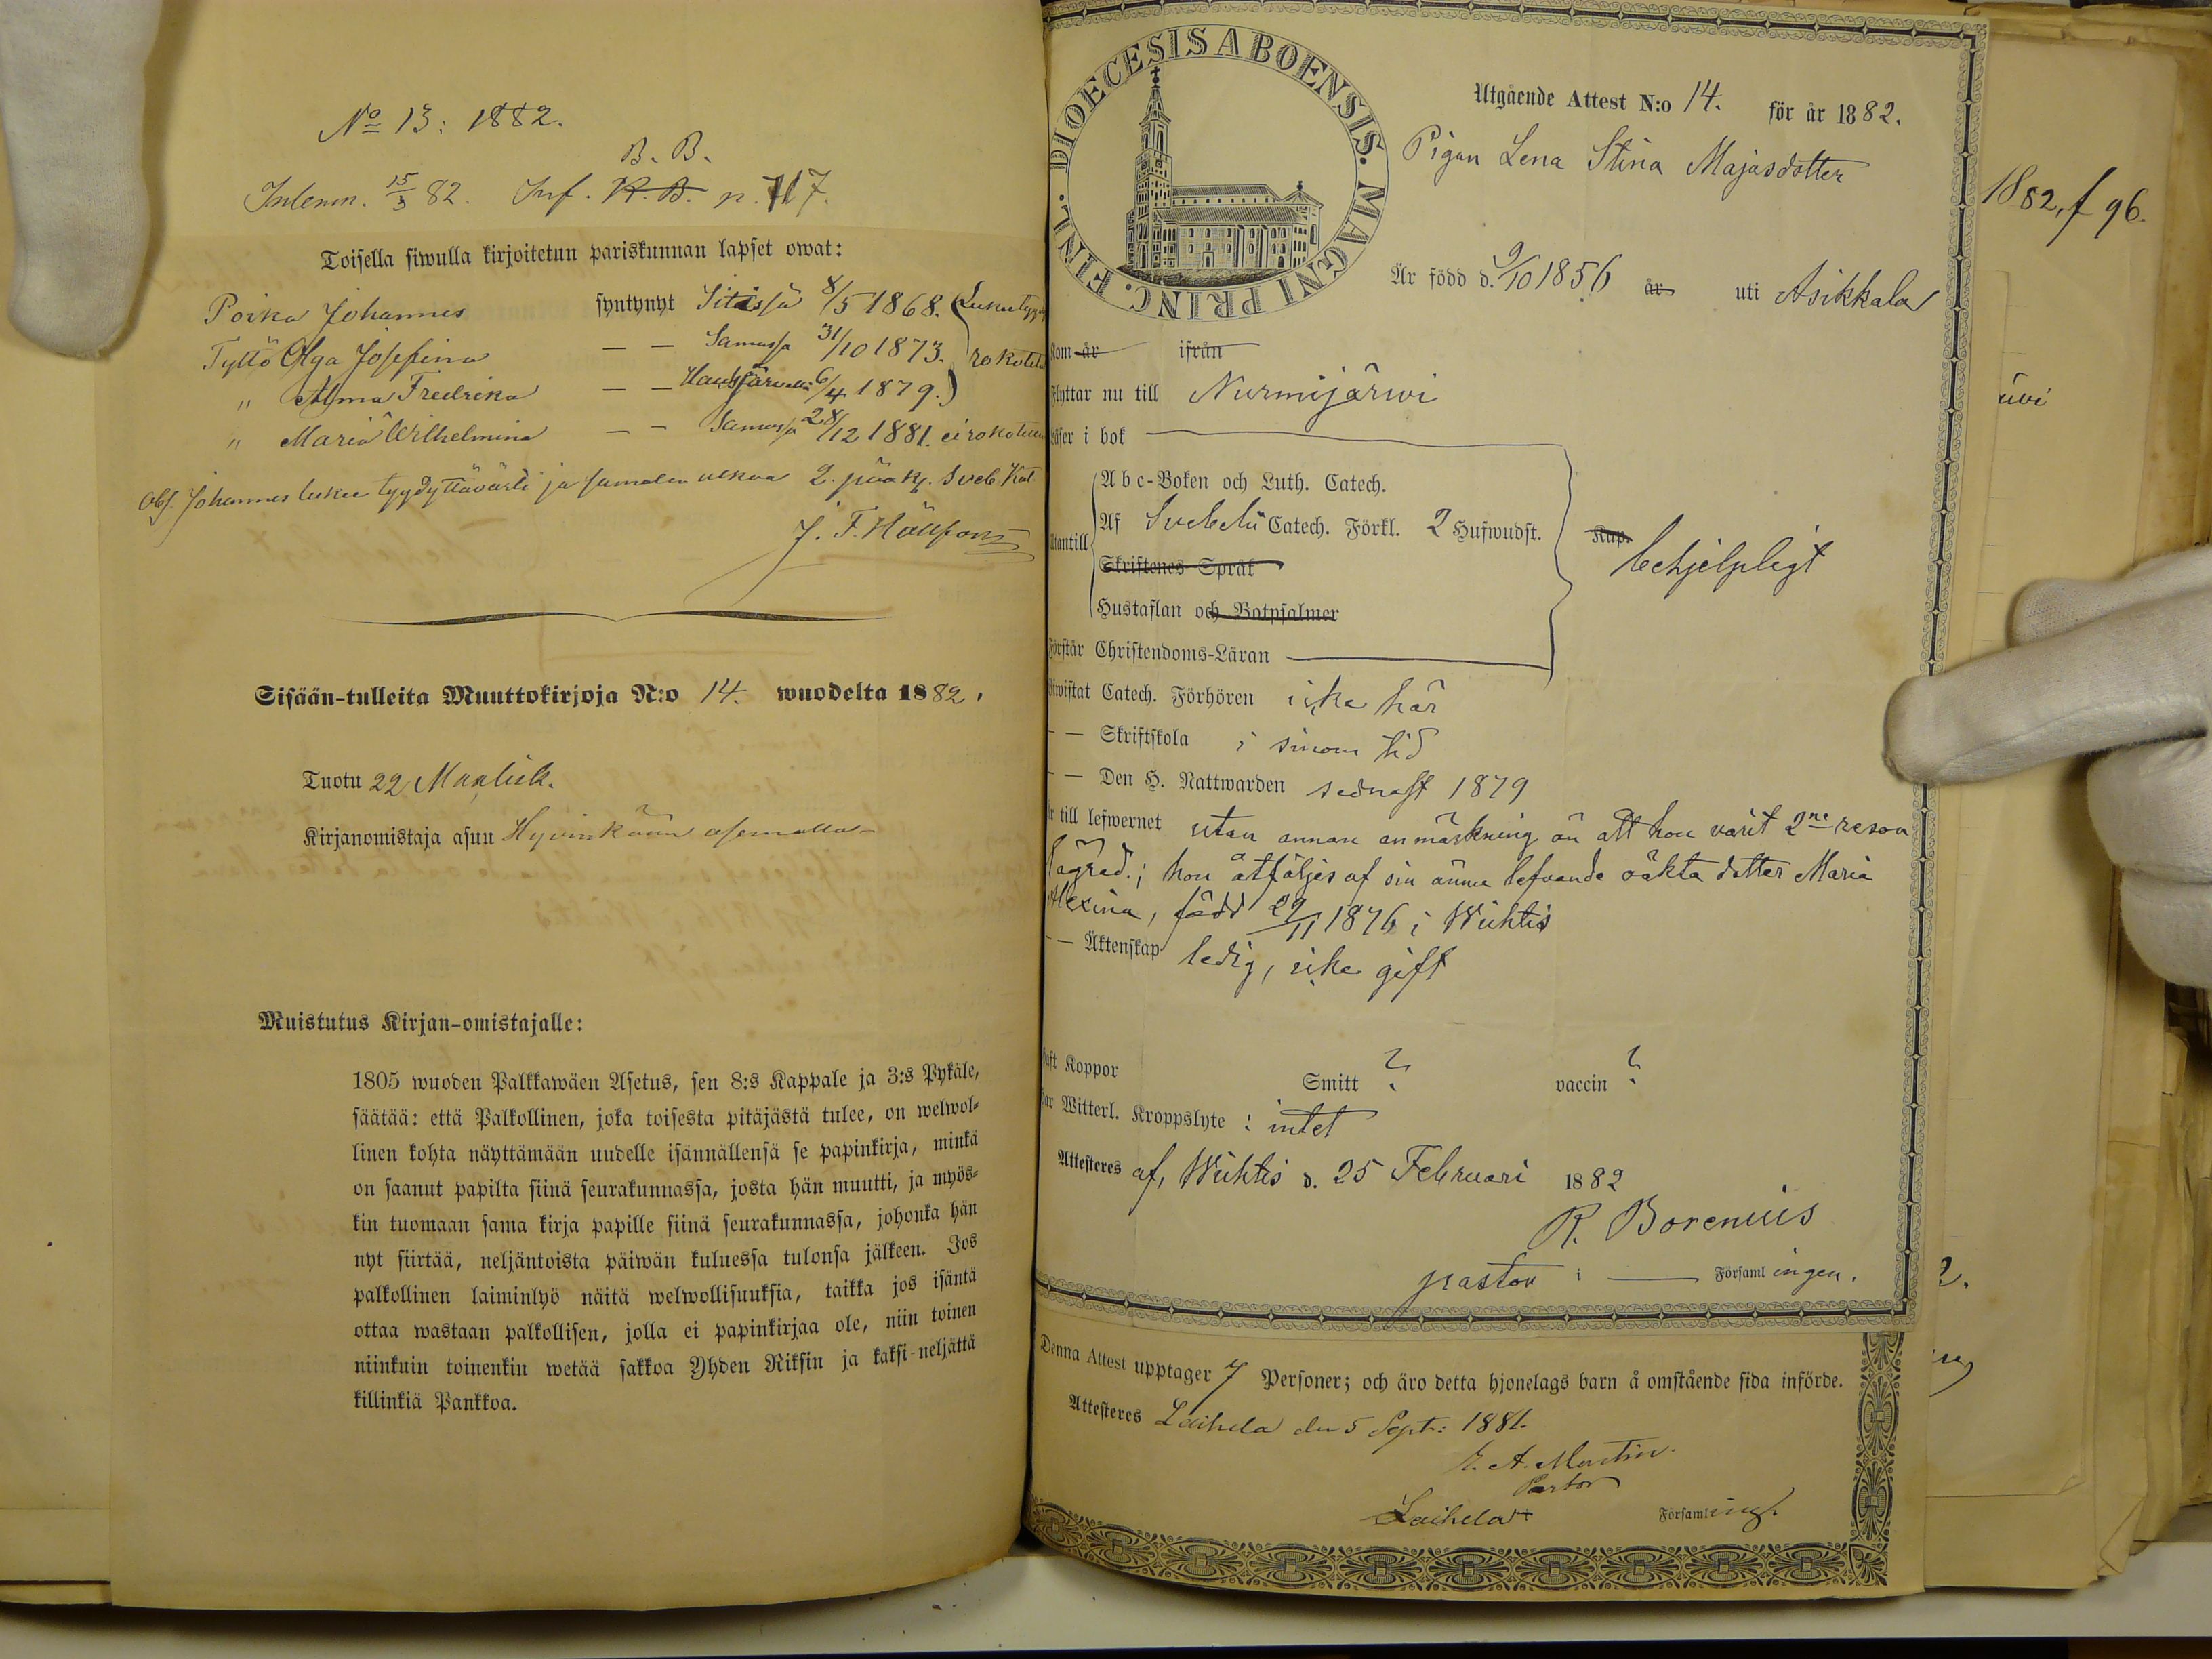 No 13: 1882.
B. B.
Inlemn. 15/3 82. Inf. K. B. p. 717.
Toisella siwulla kirjoitetun pariskunnan lapset owat:
Poika Johannes syntynyt Sitissä 8/5 1868.
Tyttö Olga Josefina — — Samassa 31/10 1873.
" Alma Fredrika — — 6/4 1879.
" Maria Wilhelmina — — Samassa 28/12 1881. ei
Obs. Johannes lukee tyydyttävästi ja samalla ulkoa 2. pääk. Sveb. Kat.
Sisään-tulleita Muuttokirjoja N:o 14. wuodelta 1882,
Tuotu 22
Kirjanomistaja asuu Hyvinkään asemalla
Muistutus Kirjan-omistajalle:
1805 wuoden Palkkawäen Asetus, sen 8:s Kappale ja 3:s Pykäle,
säätää: että Palkollinen, joka toisesta pitäjästä tulee, on welwol-
linen kohta näyttämään uudelle isännällensä se papinkirja, minkä
on saanut papilta siinä seurakunnassa, josta hän muutti, ja myös-
kin tuomaan sama kirja papille siinä seurakunnassa, johonka hän
nyt siirtää, neljäntoista päiwän kuluessa tulonsa jälkeen. Jos
palkollinen laiminlyö näitä welwollisuuksia, taikka jos isäntä
ottaa wastaan palkollisen, jolla ei papinkirjaa ole, niin toinen
niinkuin toinenkin wetää sakkoa Yhden Riksin ja kaksi-neljättä
killinkiä Pankkoa.
DIOECESIS ABOENSIS. MAGNI PRINC. FINL.
Utgående Attest N:o 14. för år 1882.
Pigan Lena Stina Majasdotter
Är född d. 9/10 1856 år uti Asikkala
kom år ifrån
Flyttar nu till Nurmijärwi
Läser i bok
Abc-Boken och Luth. Catech.
Utantill Af Svebelii Catech. Förkl. 2 Hufwudst. Kap. behjelpligt
Skriftenes Språk
Hustaflan och Botpsalmer
Förstår Christendoms-Läran
Biwistat Catech. Förhören icke här
— — Skriftskola i sinom tid
— — Den H. Nattwarden sednast 1879
Är till lefwernet utan annan anmärkning än att hon varit 2ne resor
lägrad.; hon åtföljes af sin ännu lefvande oäkta dotter Maria
Alexina, född 29/11 1876 i Wichtis
— — Äktenskap ledig, icke gift
haft Koppor Smitt ? vaccin ?
Har Witterl. Kroppslyte: intet
Attesteres af, Wichtis d. 25 Februari 1882
R. Borenius
pastor i — Församl ingen.
Denna Attest upptager 7 Personer; och äro detta hjonelags barn å omstående sida införde.
Attesteres Laihela den 5 Sept: 1881.
Pastor
Laihela Församling.
1882, f 96.